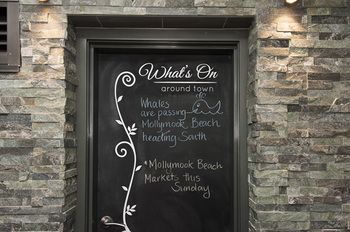 What's On
around town
Whales
are passing
Mollymook Beach
heading South
*Mollymook Beach
Markets this
Sunday